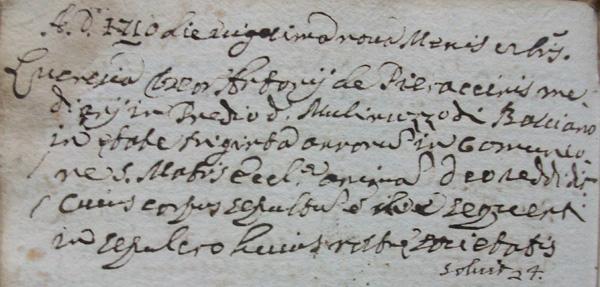 A. D. 1710 die vigesima nona Mensis
Lucretia uxor Antonij de Pieraccinis me-
in Predio d. Mulinuzzo di Basciano
in etate triginta annorum in Comunio
ne S. Matris Eccl. animam Deo reddidit
Cuius corpus sepultum e die sequenti
in sepulcro huius nostre societatis
solvit 24.